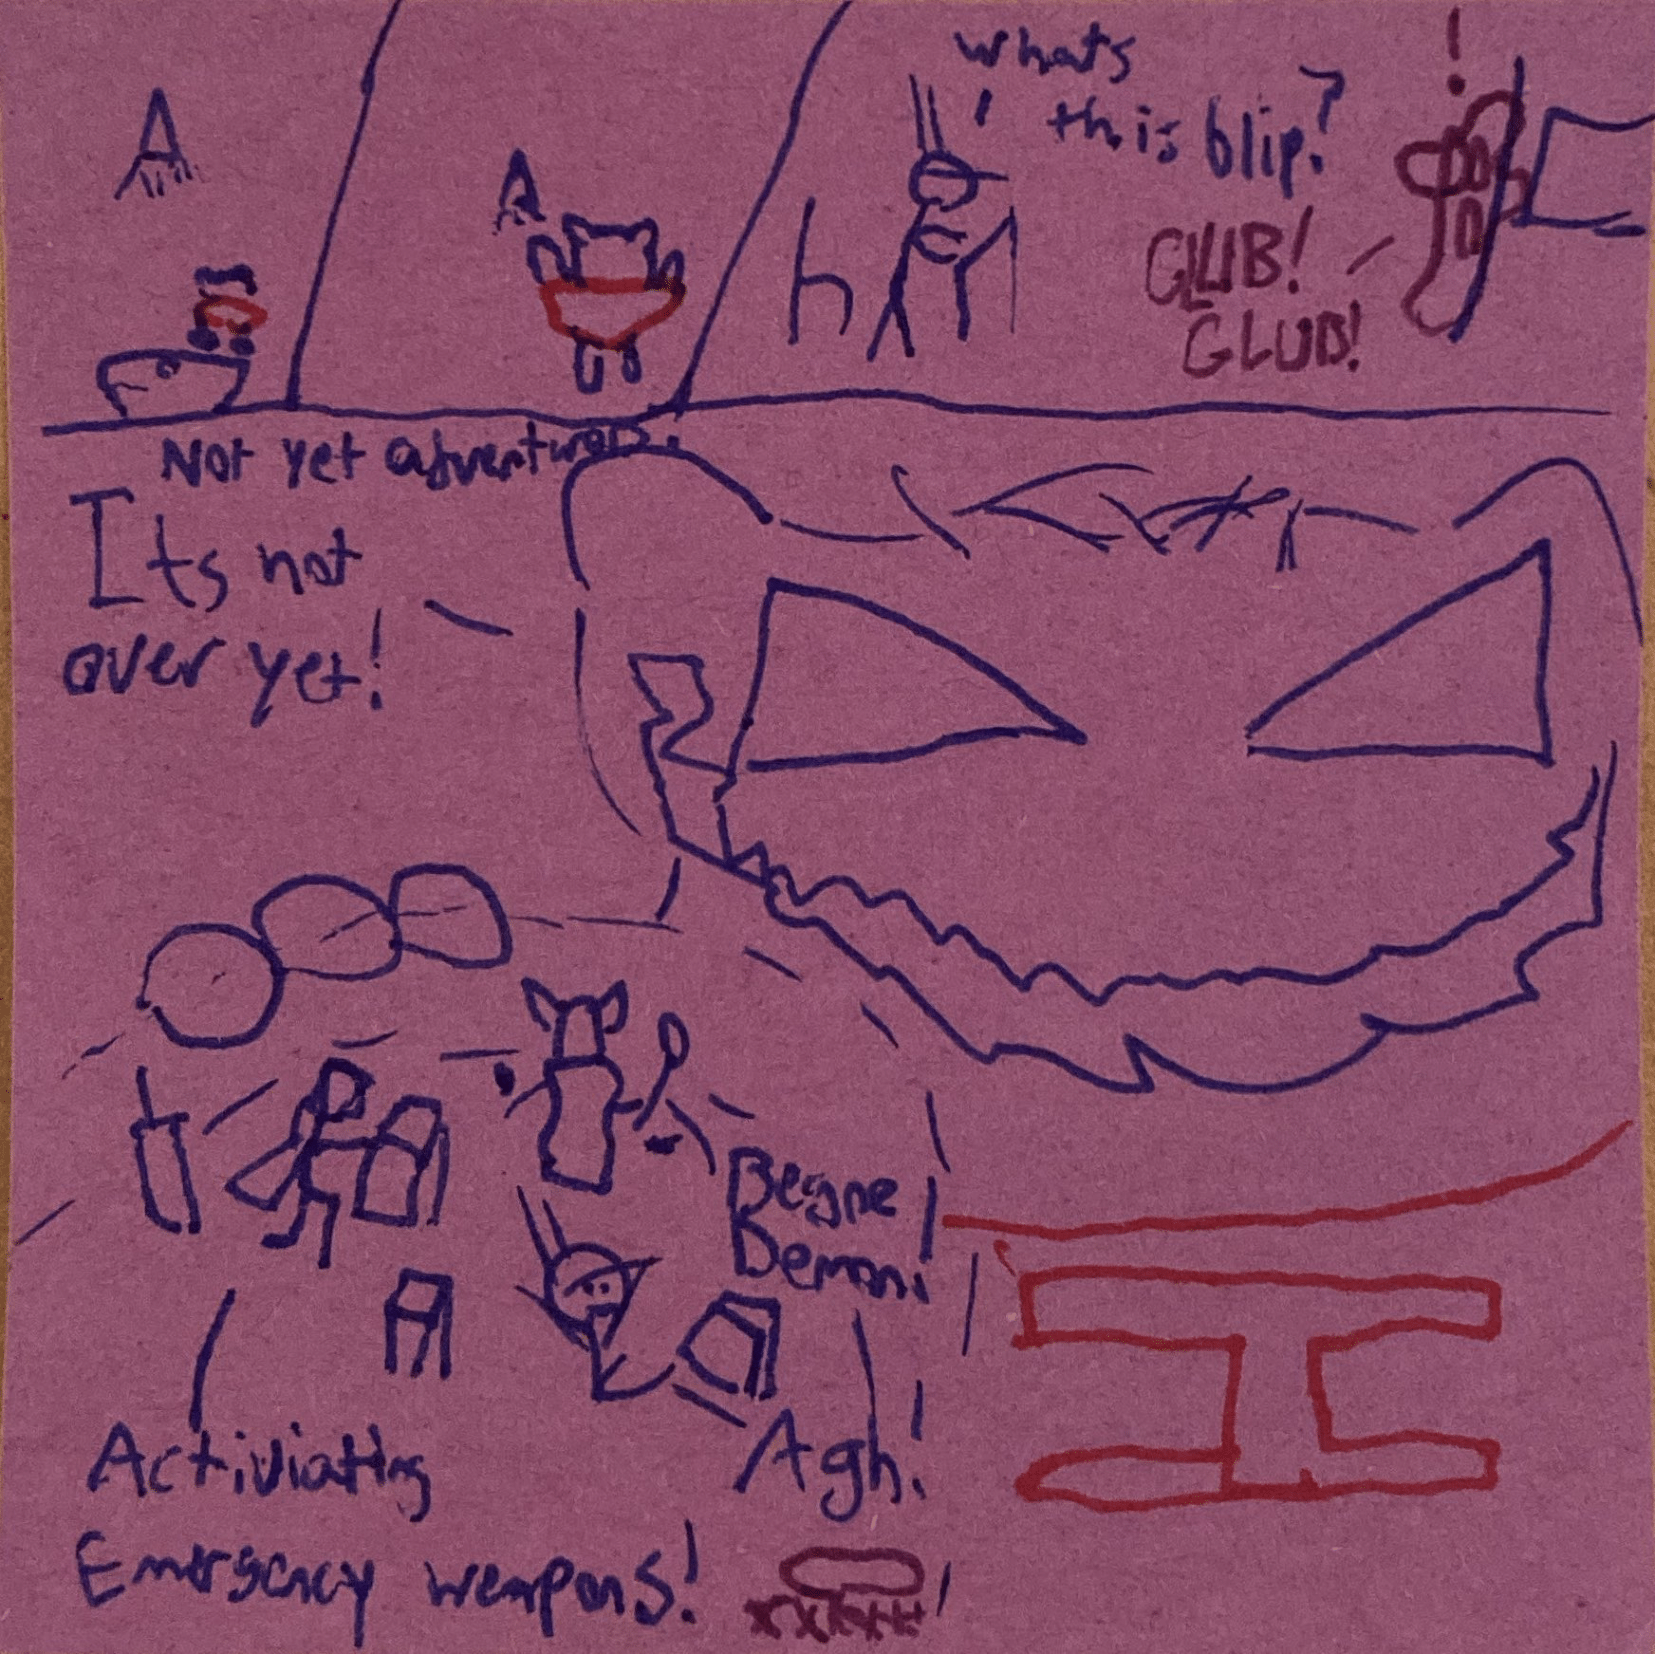 whats
this blip?
!
GLUB!
GLUB!
Not yet adventurer.
Its not
over yet!
Begne
Demon!
Activiatng
Emergency weapons!
Agh!